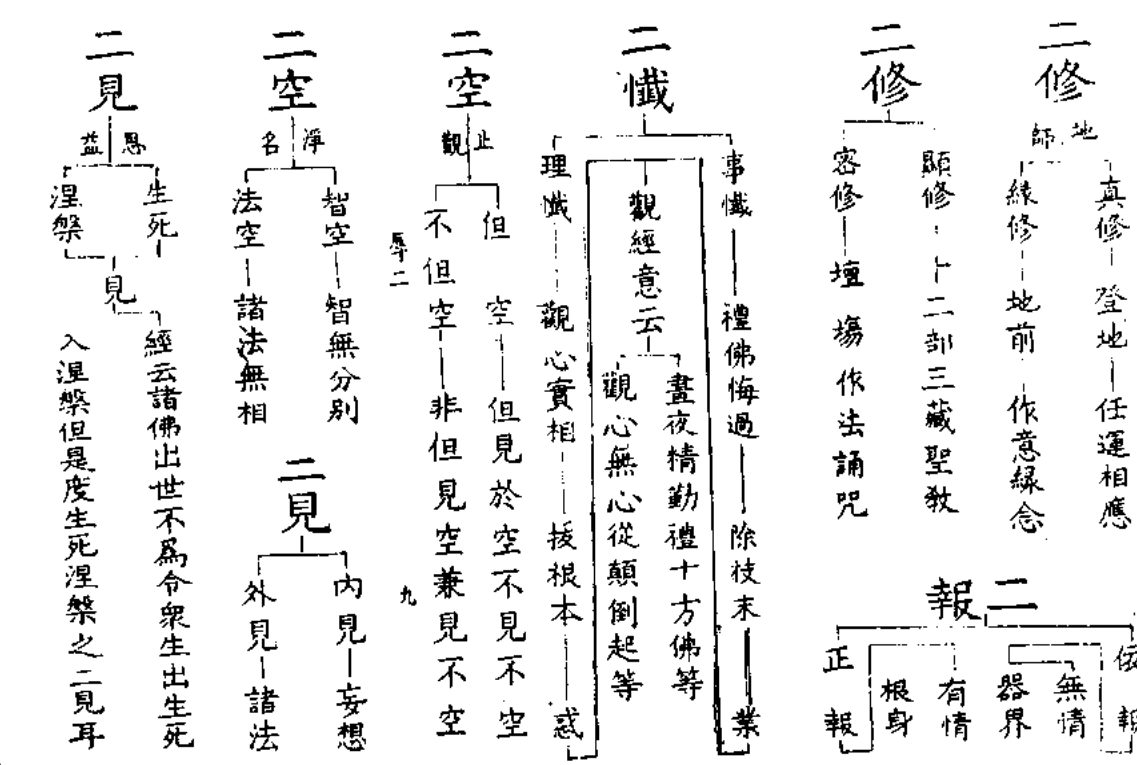 二修
地師
真修
登地
任運相應
緣修
地前
作意緣念
二修
顯修
十二部三藏聖教
密修
壇場作法誦咒
二報
依報
無情
器界
有情
根身
正報
二懺
事懺
禮佛悔過
除枝末
業
觀經意云
晝夜精勤禮十方佛等
觀心無心從顛倒起等
理懺
觀心實相
拔根本
惑
二空
止觀
但空
但見於空不見不空
不但空
非但見空兼見不空
辱二
九
二空
淨名
智空
智無分別
法空
諸法無相
二見
內見
妄想
外見
諸法
二見
思益
生死
涅槃
見
經云諸佛出世不爲令衆生出生死
入涅槃但是度生死涅槃之二見耳